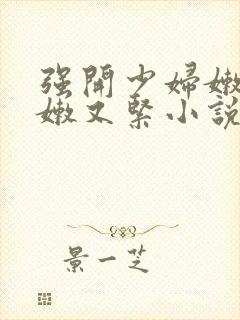 强開少婦嫩
嫩又緊小說
景一芝